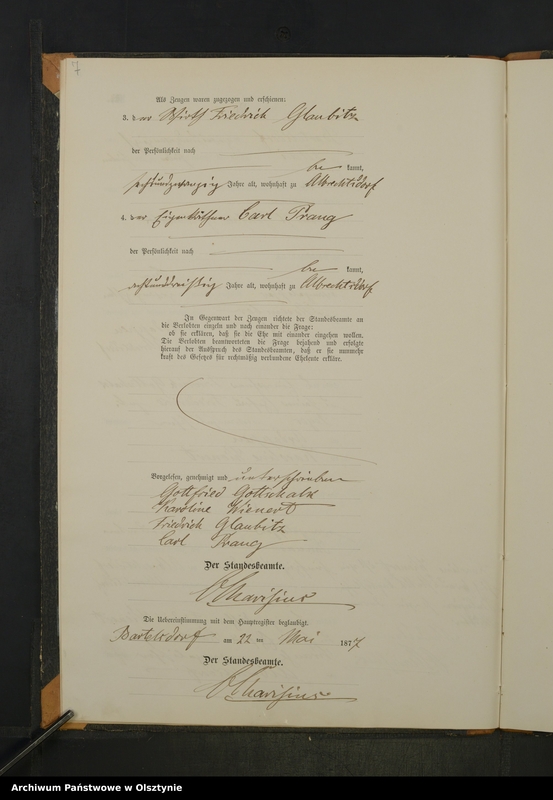 Als Zeugen waren zugezogen und erschienen:
3. der Wirth Friedrich Glaubitz
der Persönlichkeit nach
be kannt,
sechsundzwanzig Jahre alt, wohnhaft zu Albrechtsdorf
4. der Eigenkäthner Carl Prang
der Persönlichkeit nach
be kannt,
achtunddreißig Jahre alt, wohnhaft zu Albrechtsdorf
In Gegenwart der Zeugen richtete der Standesbeamte an
die Verlobten einzeln und nach einander die Frage:
ob sie erklären, daß sie die Ehe mit einander eingehen wollen.
Die Verlobten beantworteten die Frage bejahend und erfolgte
hierauf der Ausspruch des Standesbeamten, daß er sie nunmehr
kraft des Gesetzes für rechtmäßig verbundene Eheleute erkläre.
Vorgelesen, genehmigt und unterschrieben
Gottfried Gottschalk
Karoline Wienert
Friedrich Glaubitz
Carl Prang
Der Standesbeamte.
Die Uebereinstimmung mit dem Hauptregister beglaubigt.
Bartelsdorf am 22 ten Mai 1877
Der Standesbeamte.
Archiwum Państwowe w Olsztynie